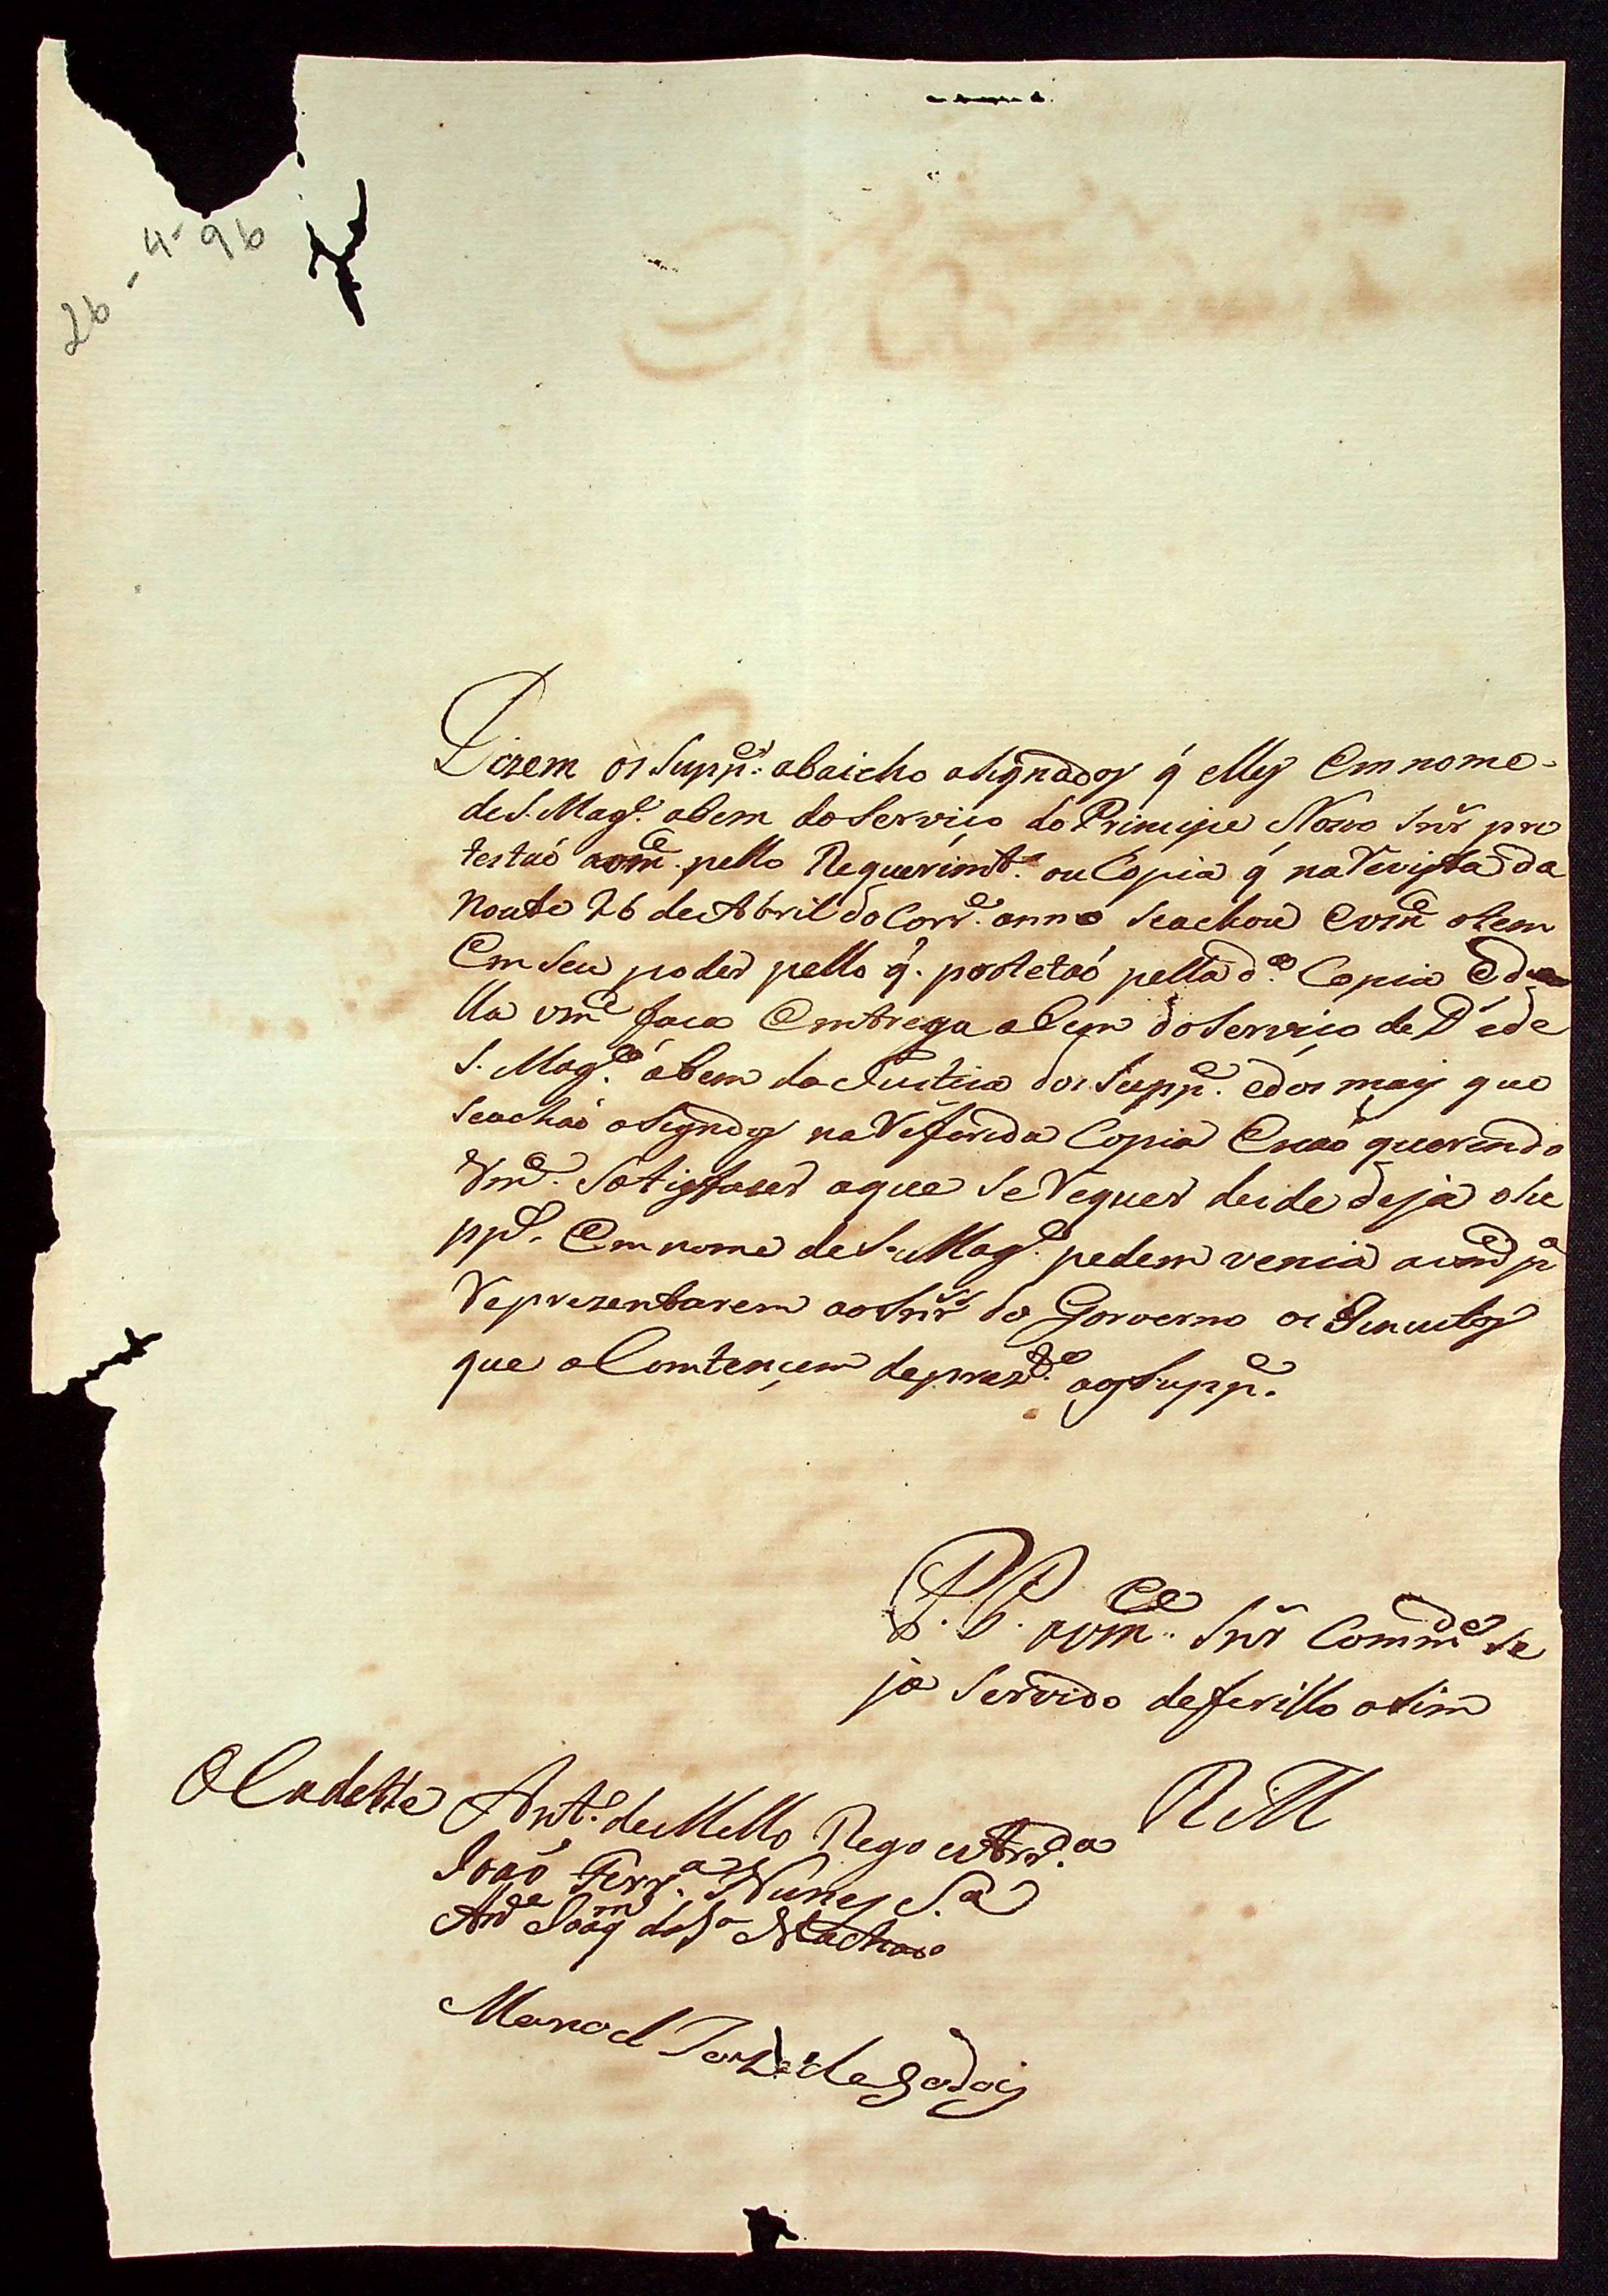 26-4-96
Dizem os Supp.es abaicho asignados q̃ elles Em nome
de S. Mag.e abem do Serviço do Principe Noso Snr̃ pro
testaõ avm.ce pello Requerimt.o ou Copia q̃ na Revista da
Noute 26 de Abril do Corr.e anno Seachou Evm.ce otem
Em Seu poder pello q̃. protetaõ pella d.a Copia Ede
lla vm.ce faca Emtrega abem do Serviço de D.s ede
S. Mag.e abem da Justica dos Supp.es edos mais que
Seachaõ asignados na Referida Copia Enaõ querendo
Vm.ce Satisfazer aque Se Requer desde deja osu
pp.es Em nome de S. Mag.e pedem venia avm.ce p.a
Reprezentarem aoSnr̃ do Governo os
que aComteçem deprez.te aosSupp.es
P. P. avm.ce Snr̃ Comm.de Se
ja Servido defferillo asim
R. M
O Cadette Ant.o de Mello Rego eArr.da
Joaõ Ferr.a Nunes S.a
And.e Joaq.m da S.a Machado
Manoel Jozé de Godoij